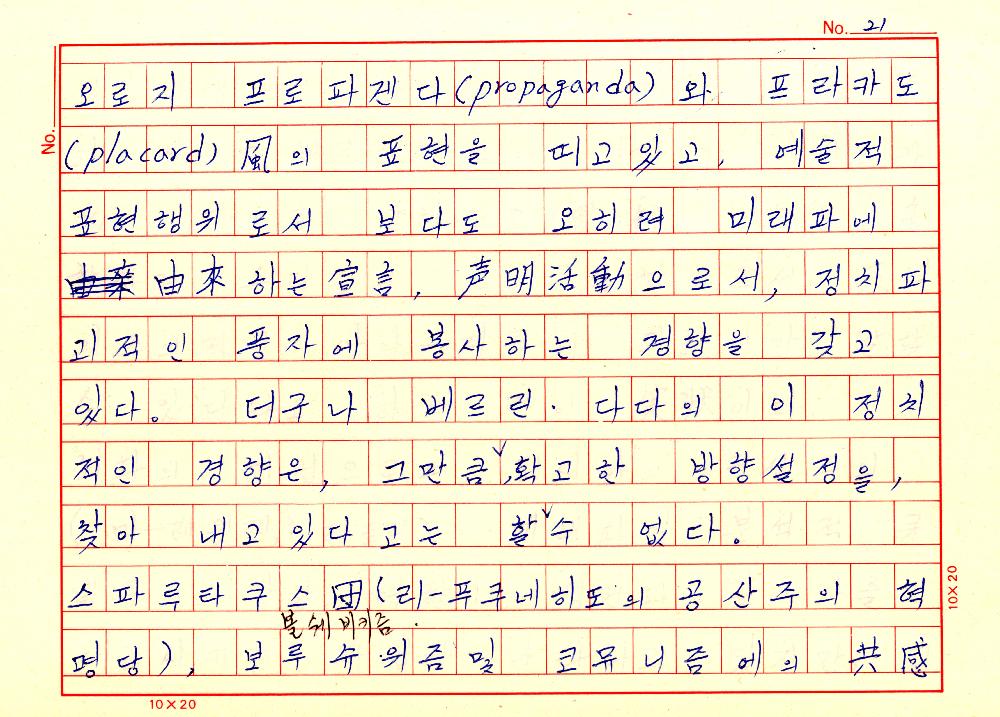 No. 21
No.
오로지 프로파겐다(propaganda)와 프라카도
(placard)風의 표현을 띠고있고, 예술적
표현행위로서 보다도 오히려 미래파에
由來하는 宣言, 声明活動으로서, 정치파
괴적인 풍자에 봉사하는 경향을 갖고
있다. 더구나 베르린·다다의 이 정치
적인 경향은, 그만큼,확고한 방향설정을,
찾아 내고있다고는 할수 없다.
스파루타쿠스団(리-푸쿠네히도의 공산주의 혁
볼쉐비키즘.
명당), 보루슈위즘및 코뮤니즘에의 共感
10×20
10×20